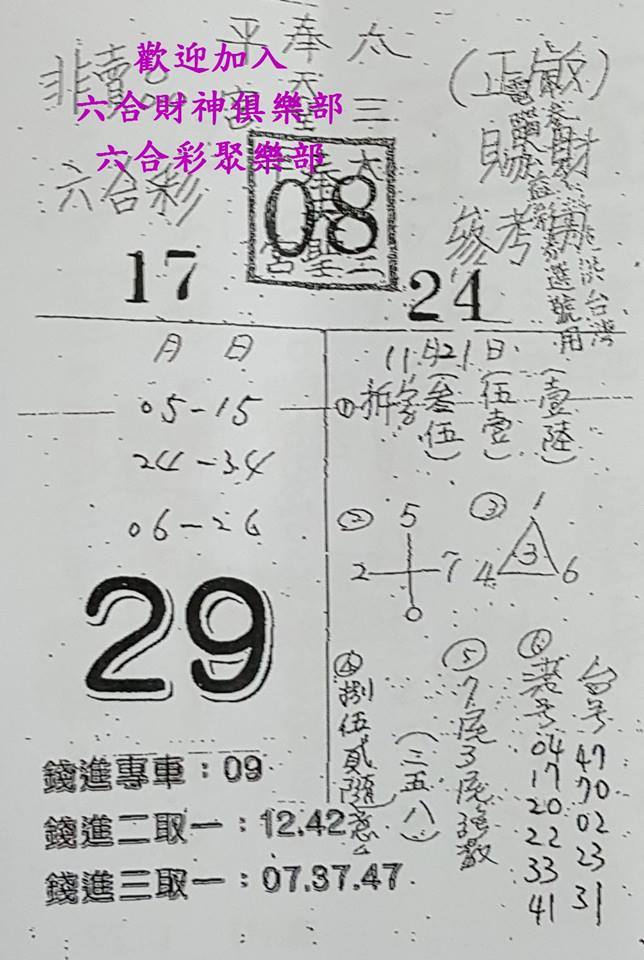 歡迎加入
六合財神俱樂部
六合彩聚樂部
奉
太
平
天
三
非賣品
宮
六合彩
(正嚴)
賜財
參考用
08
17
24
月 日
05-15
24-34
06-26
29
錢進專車：09
錢進二取一：12.42
錢進三取一：07.37.47
11月21日
① 拆字(叁伍)(伍壹)(壹陸)
② 5
2 7
0
③ 1
3
4 6
④ 捌伍貳隨意
(三五八)
⑤ 7尾3尾強數
⑥ 港号 台号
04 47
17 70
20 02
22 23
33 31
41